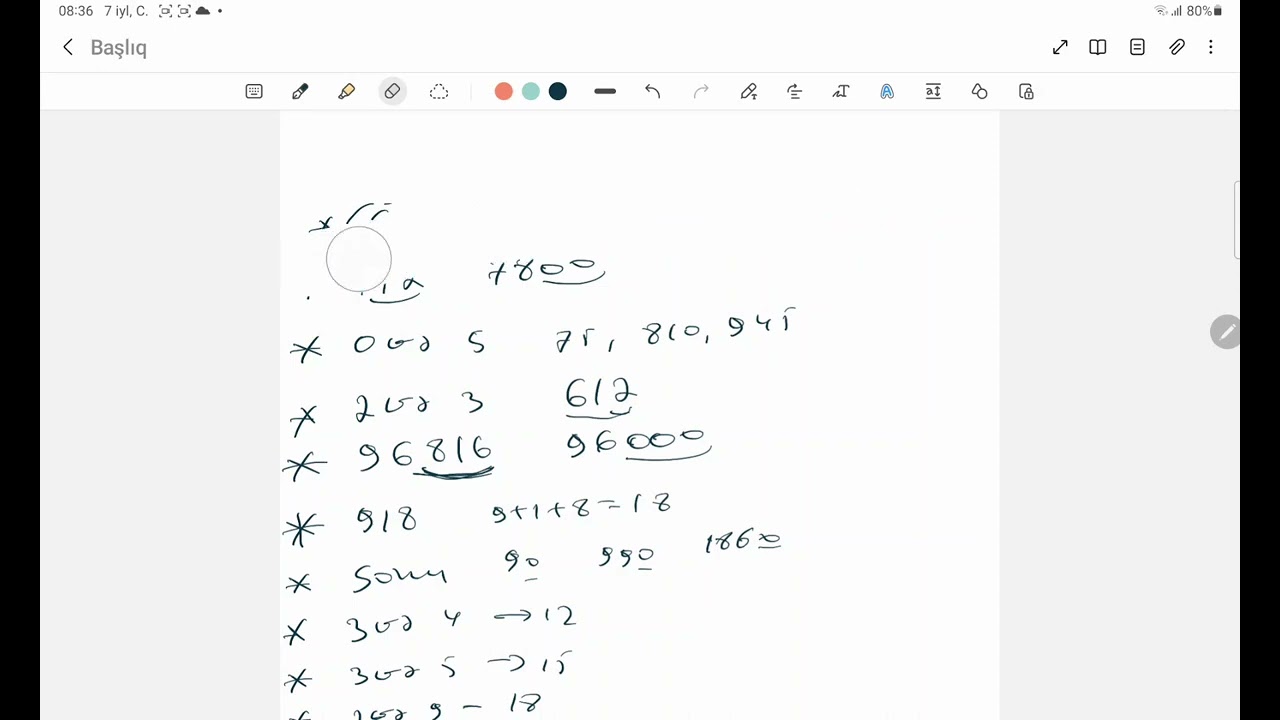 08:36 7 iyl, C. 80%
Başlıq
7800
* 0 və 5 75, 810, 945
* 2 və 3 612
* 96816 96000
* 918 9+1+8=18
* Sonu 90 990 1860
* 3 və 4 → 12
* 3 və 5 → 15
* 2 və 9 - 18